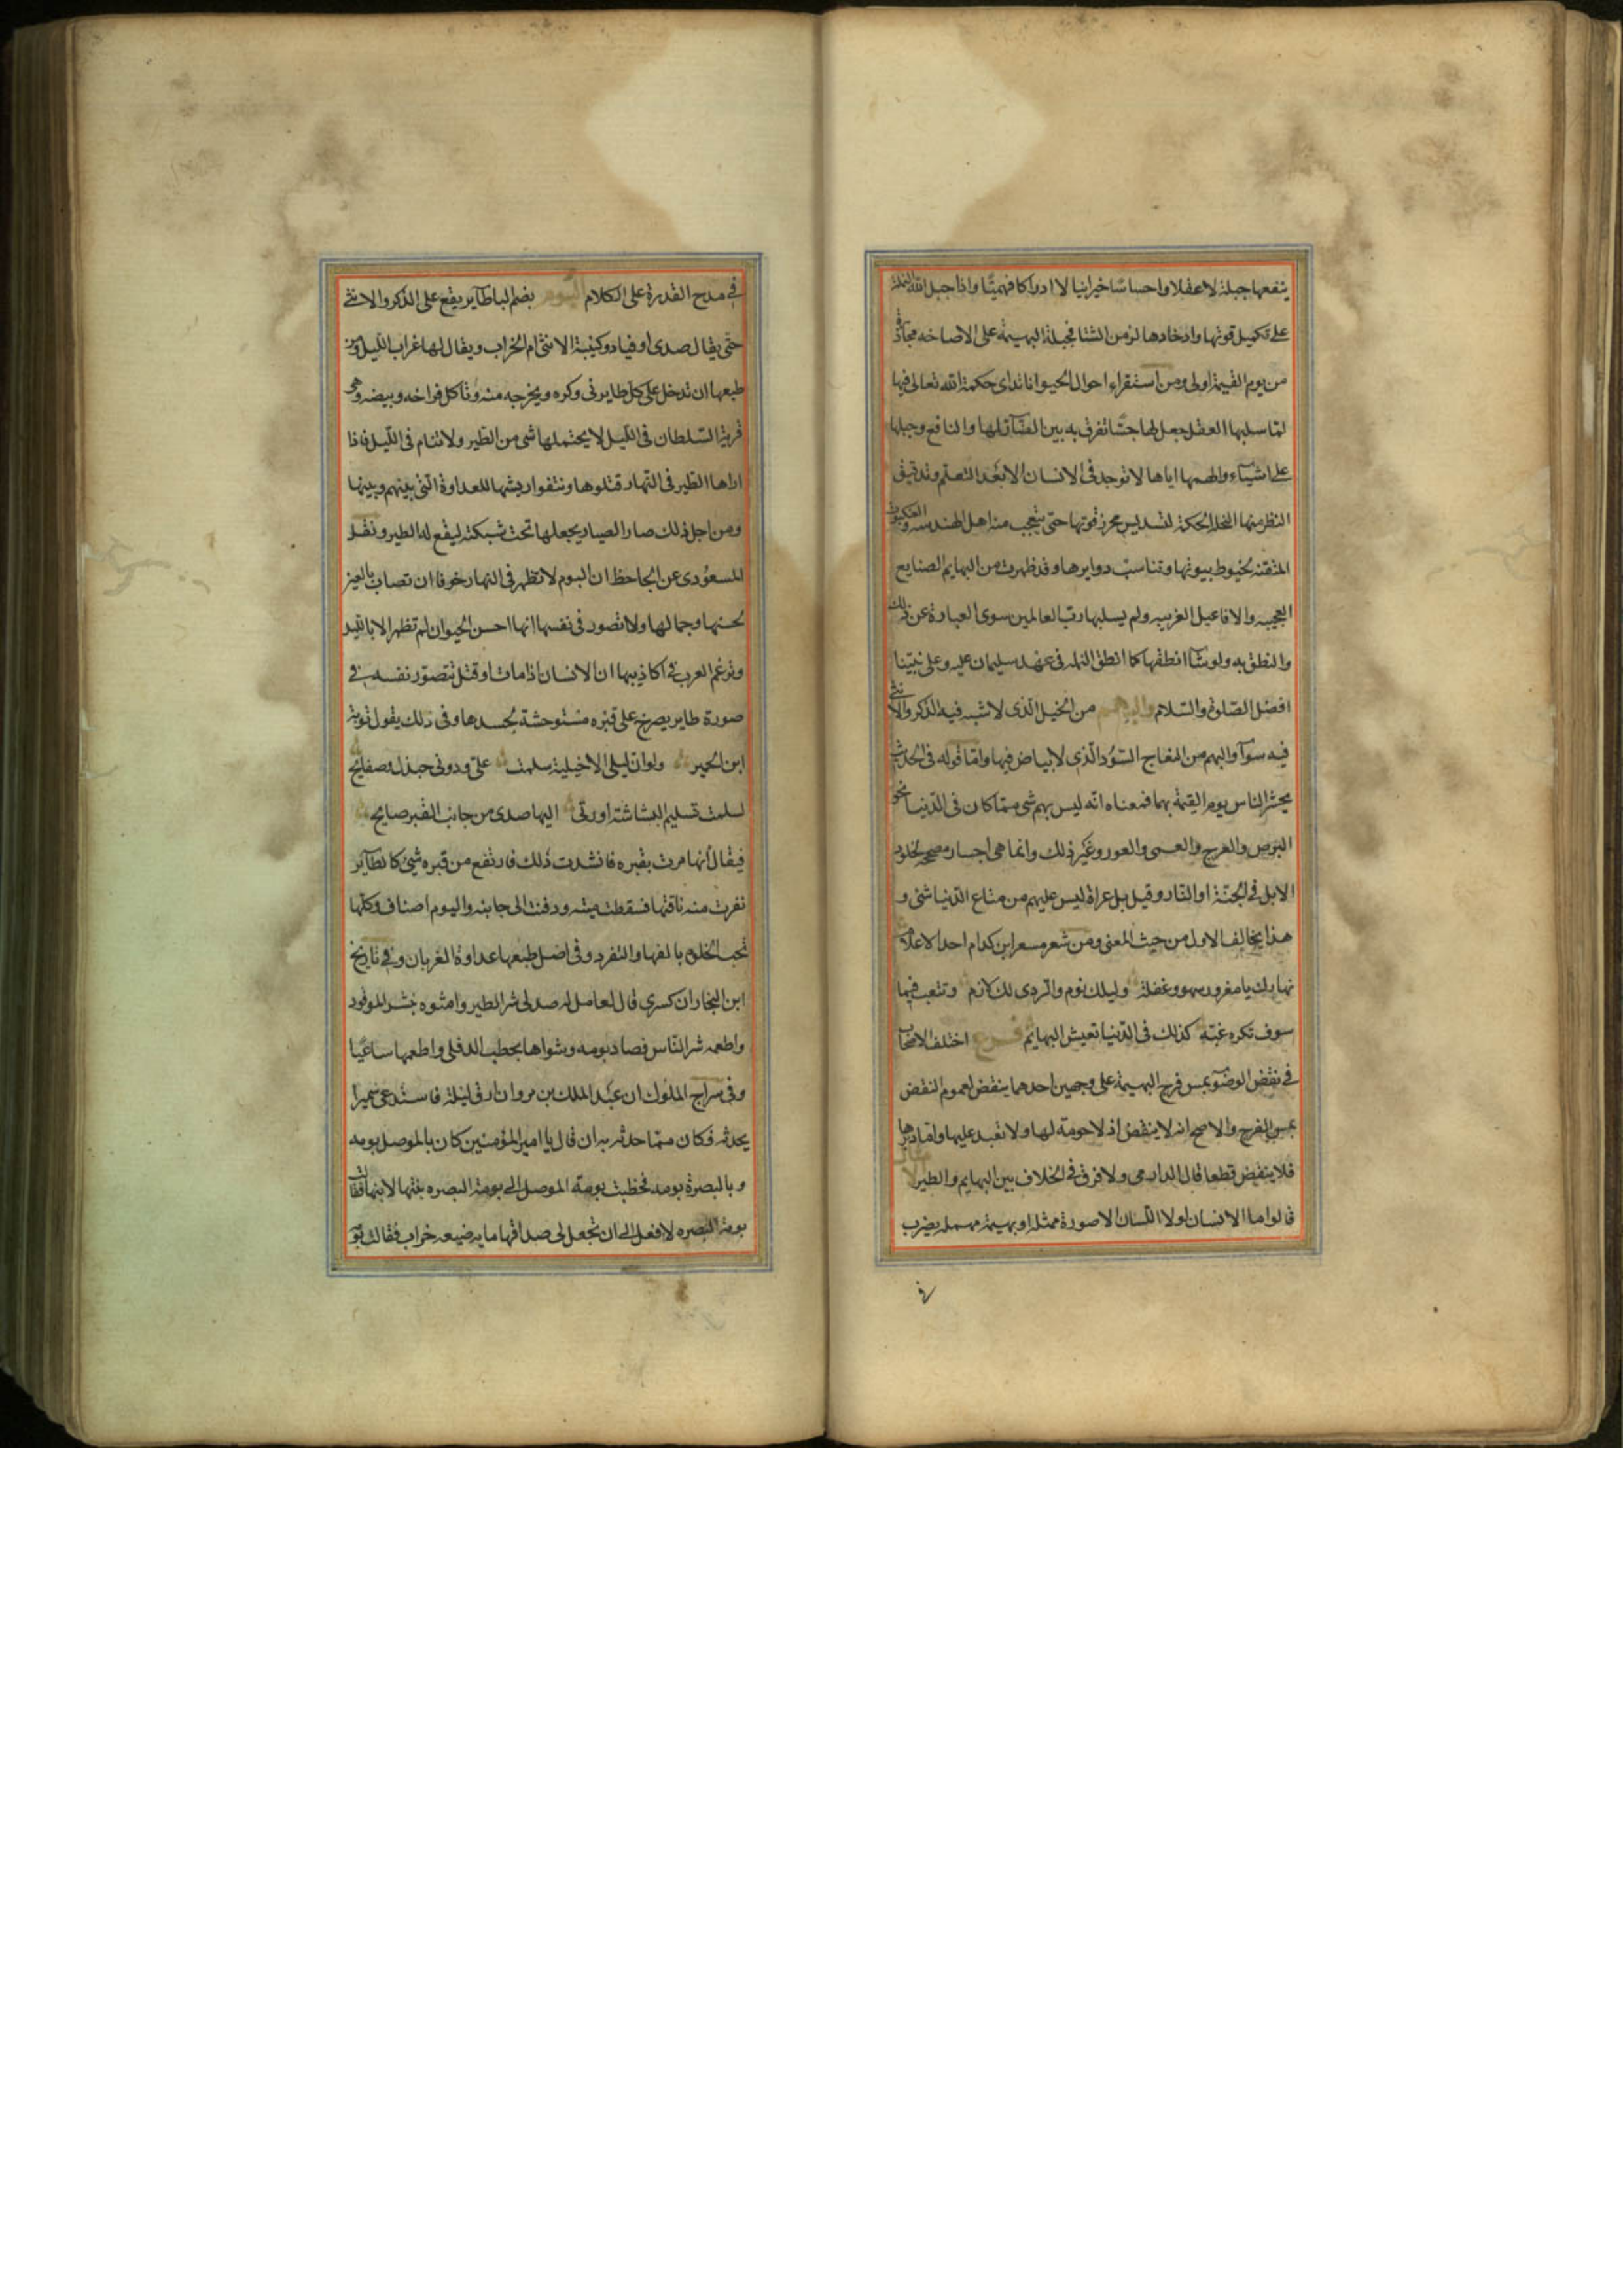 ينفعها جبلة لا عقلا واحساسا خيرانيا لا ادراكا فهميا واذا جبل الله النملة
على تكميل قوتها وادخارها لزمن الشتا فجبلة البهيمة على الاصاخه مجاز
من يوم القيمة اولى ومن استقراء احوال الحيوانات راى حكمة الله تعالى فيها
لما سلبها العقل جعل لها حسا تفرق به بين الضار لها والنافع وجبلها
على اشياء والهمها اياها لا توجد فى الانسان الا بعد التعلم وتدقيق
النظر منها النحلة المحكمة لتسديس مخزن قوتها حتى يتعجب منه اهل الهندسه والعنكبوت
المتقنه لخيوط بيوتها وتناسب دوايرها وقد ظهرت من البهايم الصنايع
العجيبه والافاعيل الغريبه ولم يسلبها رب العالمين سوى العبارة عن ذلك
والنطق به ولو شا انطقها كما انطق النمله فى عهد سليمان عليه وعلى نبينا
افضل الصلوة والسلام والبهيم من الخيل الذى لا شبه فيه الذكر والانثى
فيه سوآ والبهم من النعاج السود الذى لا بياض فيها واما قوله فى الحديث
يحشر الناس يوم القيمة بهما فمعناه انه ليس بهم شى مما كان فى الدنيا نحو
البرص والعرج والعمى والعور وغير ذلك وانما هى اجساد مصححة لخلود
الابل فى الجنة او النار وقيل بل عراة ليس عليهم من متاع الدنيا شى و
هذا يخالف الاول من حيث المعنى ومن شعر مسعر ابن كدام احد الاعلام
نهارك يا مغرور سهو وغفلة وليلك نوم والردى لك لازم وتتعب فيما
سوف تكره غبه كذلك فى الدنيا تعيش البهايم فرع اختلف الاصحاب
فى نقض الوضو بمس فرج البهيمة على وجهين احدهما ينقض لعموم النقض
بمس الفرج والاصح انه لا ينقض اذ لا حرمة لها ولا تعبد عليها واما دبرها
فلا ينقض قطعا قال الدارمى ولا فرق فى الخلاف بين البهايم والطير
قالوا ما الانسان لولا اللسان الا صورة ممثله او بهيمة مهمله يضرب
فى
فى مدح القدرة على الكلام البوم بضم البا طاير يقع على الذكر والانثى
حتى يقال صدى او فياد وكنية الانثى ام الخراب ويقال لها غراب الليل ومن
طبعها ان تدخل على كل طاير فى وكره ويخرجه منه وتاكل فراخه وبيضه وهى
قوية السلطان فى الليل لا يحتملها شى من الطير ولا تنام فى الليل فاذا
اراها الطير فى النهار قتلوها ونتفوا ريشها للعداوة التى بينهم وبينها
ومن اجل ذلك صار الصياد يجعلها تحت شبكته ليقع له الطير ونقل
المسعودى عن الجاحظ ان البوم لا تظهر فى النهار خوفا ان تصاب بالعين
لحسنها وجمالها ولا تصور فى نفسها انها احسن الحيوان لم تظهر الا بالليل
وتزعم العرب فى اكاذيبها ان الانسان اذا مات او قتل تتصور نفسه فى
صورة طاير يصرخ على قبره مستوحشة لجسدها وفى ذلك يقول توبة
ابن الحمير ولو ان ليلى الاخيلية سلمت على ودونى جندل وصفايح
لسلمت تسليم البشاشة او زقى اليها صدى من جانب القبر صايح
فيقال انها مرت بقبره فانشدت ذلك فارتفع من قبره شئ كالطاير
نفرت منه ناقتها فسقطت ميته ودفنت الى جانبه واليوم اصناف وكلها
تحب الخلوة بانفسها والتفرد وفى اصل طبعها عداوة الغربان وفى تاريخ
ابن النجار ان كسرى قال لعامل له صد لى شر الطير وامشوه بشر الوقود
واطعمه شر الناس فصاد بومه وشواها بحطب الدفلى واطعمها ساعيا
وفى سراج الملوك ان عبد الملك بن مروان ارق ليلة فاستدعى سميرا
يحدثه فكان مما حدثه به ان قال يا امير المؤمنين كان بالموصل بومه
وبالبصرة بومه فخطبت بومة الموصل الى بومة البصره بنتها لابنها فقالت
بومة البصره لا افعل الى ان تجعل لى صداقها مايه ضيعه خراب فقالت بو